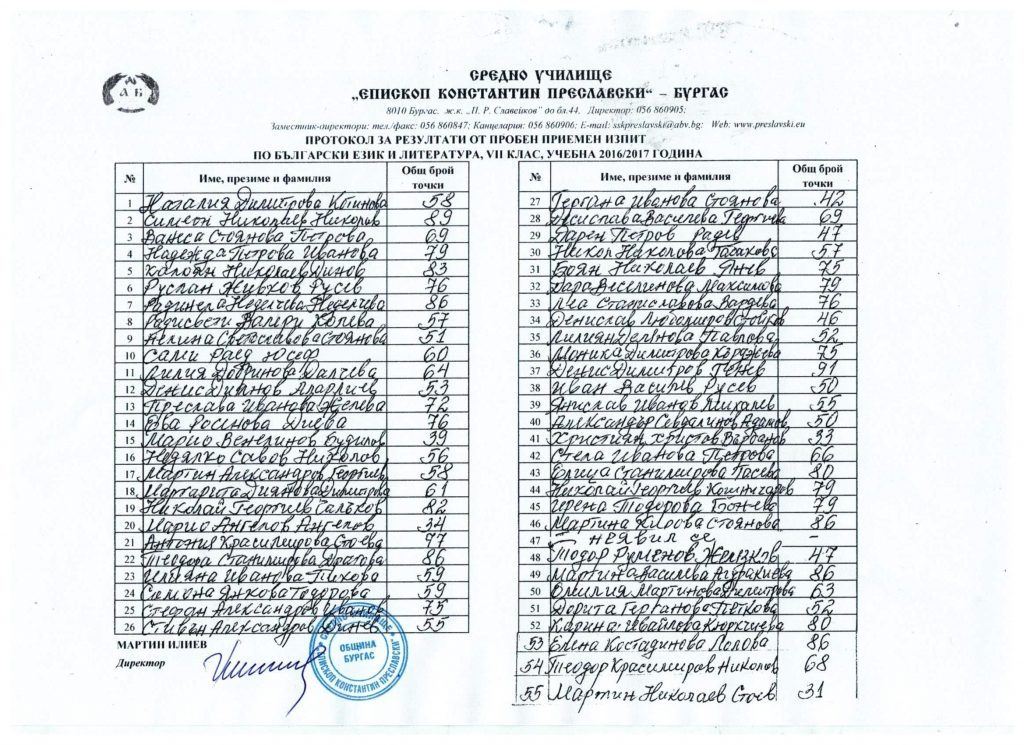 АБ
СРЕДНО УЧИЛИЩЕ
„ЕПИСКОП КОНСТАНТИН ПРЕСЛАВСКИ“ – БУРГАС
8010 Бургас, ж.к. „П. Р. Славейков“ до бл.44, Директор: 056 860905;
Заместник-директори: тел./факс: 056 860847; Канцелария: 056 860906; E-mail: sskpreslavski@abv.bg; Web: www.preslavski.eu
ПРОТОКОЛ ЗА РЕЗУЛТАТИ ОТ ПРОБЕН ПРИЕМЕН ИЗПИТ
ПО БЪЛГАРСКИ ЕЗИК И ЛИТЕРАТУРА, VII КЛАС, УЧЕБНА 2016/2017 ГОДИНА
№ Име, презиме и фамилия Общ брой точки
1 Наталия Димитрова Котинова 58
2 Симеон Николаев Николов 89
3 Ванеса Стоянова Петрова 69
4 Надежда Петрова Иванова 79
5 Калоян Николаев Динов 83
6 Руслан Живков Русев 76
7 Радинела Неделчева Неделчева 86
8 Радисвети Валери Колева 57
9 Нелина Светославова Стоянова 51
10 Сами Раед Юсеф 60
11 Лилия Добринова Далчева 64
12 Денис 53
13 Преслава Иванова Желева 72
14 Ева Росенова Диева 76
15 Марио Венелинов Будилов 39
16 Недялко Савов Николов 56
17 Мартин Александров Георгиев 58
18 Маргарита Диянова Димитрова 61
19 Николай Георгиев Сальков 82
20 Марио Ангелов Ангелов 34
21 Антония Красимирова Стоева 97
22 Теодора Станимирова Драгова 86
23 Илияна Иванова Тихора 59
24 Симона Янкова Тодорова 59
25 Стефан Александров Иванов 75
26 Стивен Александров Динев 55
МАРТИН ИЛИЕВ
Директор
ОБЩИНА
БУРГАС
ЕПИСКОП КОНСТАНТИН ПРЕСЛАВСКИ
№ Име, презиме и фамилия Общ брой точки
27 Гергана Иванова Стоянова 42
28 Десислава Василева Георгиева 69
29 Дарен Петров Радев 47
30 Никол Николова Табакова 57
31 Боян Николаев Янев 75
32 Дара Веселинова Максимова 79
33 Лиа Станиславова Вардева 76
34 Денислав Любомиров Стойков 46
35 Лилиян Деянова Павлова 52
36 Моника Димитрова Кърджева 75
37 Денис Димитров Генев 91
38 Иван Василев Русев 50
39 Янислав Иванов Михалев 55
40 Александър Севдалинов Адамов 50
41 Християн Христов Върбанов 33
42 Стела Иванова Петрова 66
43 Елица Станимирова Пасева 80
44 Николай Георгиев Кошничаров 79
45 Ирена Тодорова Бонева 79
46 Мартина Кирова Стоянова 86
47 неявил се -
48 Тодор Руменов Желязков 47
49 Мартина Василева 86
50 Емилия Мартинова Димитрова 63
51 Дорита Герганова Петкова 52
52 Карина Ивайлова Кюркчиева 80
53 Елена Костадинова Попова 86
54 Теодор Красимиров Николов 68
55 Мартин Николаев Стоев 31